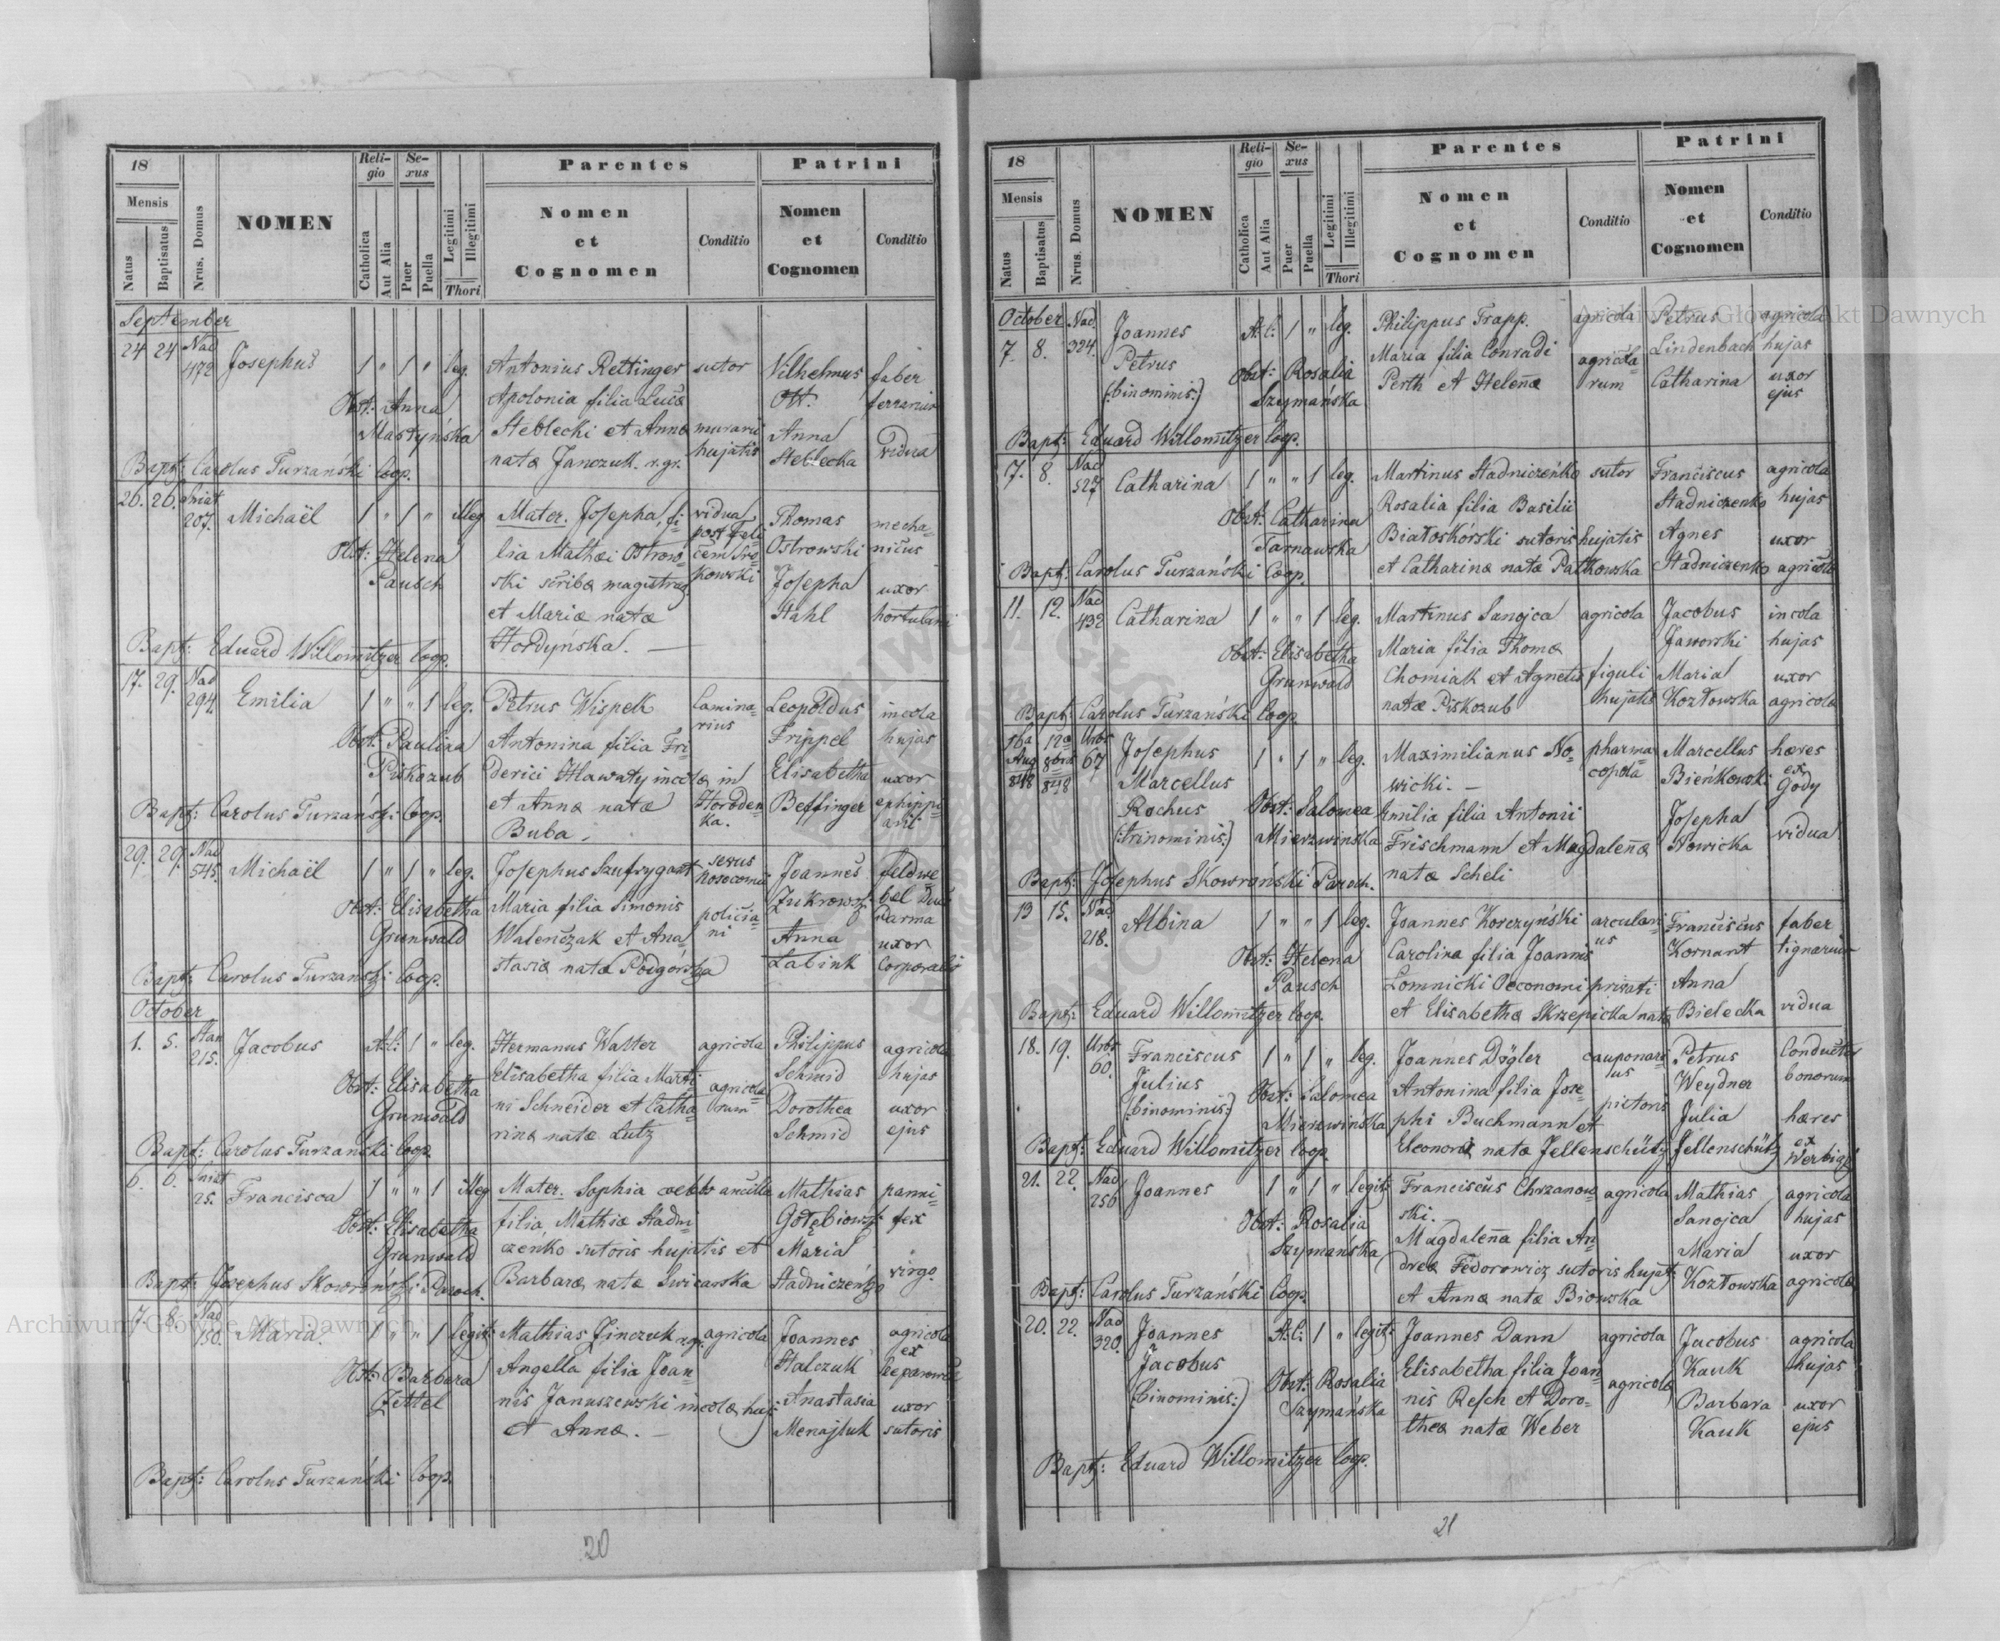 18
Mensis
Natus
Baptisatus
Nrus. Domus
NOMEN
Religio
Catholica
Aut Alia
Sexus
Puer
Puella
Legitimi
Illegitimi
Thori
Parentes
Nomen
et
Cognomen
Conditio
Patrini
Nomen
et
Cognomen
Conditio
September
24 24 Nad 472 Josephus 1 " 1 " leg. Antonius Rettinger sutor Vilhelmus faber
Obst: Anna Apolonia filia Lucæ Ott. ferrarius
Martyńska Steblecki et Annæ murarii hujatis Anna vidua
natæ Janczuk. r. gr. Steblecka
Bapt: Carolus Turzański Coop.
26. 26. Sniat 207. Michaël 1 " 1 " illeg. Mater. Josepha, fi- vidua Thomas mecha-
Obst: Helena lia Mathæi Ostrow- post Feli- Ostrowski nicus
Pausch ski scribæ magistrat. Josepha uxor
et Mariæ natæ Stahl hortulani
Hordyńska. —
Bapt: Eduard Willomitzer Coop.
17. 29. Nad 294. Emilia 1 " " 1 leg. Petrus Wispek lamina- Leopoldus incola
rius
Obst: Paulina Antonina filia Fri- Frippel hujas
Piskozub derici Hlawaty incolæ in Elisabetha uxor
et Annæ natæ Horoden- Beffinger ephippi-
ka. arii
Buba.
Bapt: Carolus Turzański Coop.
29. 29. Nad 545. Michaël 1 " 1 " leg. Josephus Szufrygant Joannes feldwe-
Obst: Elisabetha Maria filia Simonis policia- Żukrowsk. bel
ni
Grunwald Walenczak et Ana- Anna uxor
stasiæ natæ Podgórska Labink corporalis
Bapt: Carolus Turzański Coop.
October
1. 5. Stan 215. Jacobus A.C: 1 " leg. Hermanus Walter agricola Philippus agricola
Obst: Elisabetha Elisabetha filia Marti- agricola- Schmid hujas
Grunwald ni Schneider et Catha- rum Dorothea uxor
rinæ natæ Lutz Schmid ejus
Bapt: Carolus Turzański Coop.
6. 6. Sniat 25. Francisca 1 " " 1 illeg. Mater. Sophia coelebs ancilla Mathias panni-
Obst: Elisabetha filia Mathiæ Stadni- Gołębiowsk. fex
Grunwald czeńko sutoris hujatis et Maria virgo.
Barbaræ natæ Swicarska Stadniczeńko
Bapt: Josephus Skowroński Paroch.
7. 8. Nad 150. Maria. 1 " " 1 legit: Mathias Jinczuk r.gr. agricola Joannes agricola
ex
Obst: Barbara Angella filia Joan- Halczuk
Zettel nis Januszewski incolæ huj: Anastasia uxor
et Annæ. — Menajluk sutoris
Bapt: Carolus Turzański Coop.
20
18
Mensis
Natus
Baptisatus
Nrus. Domus
NOMEN
Religio
Catholica
Aut Alia
Sexus
Puer
Puella
Legitimi
Illegitimi
Thori
Parentes
Nomen
et
Cognomen
Conditio
Patrini
Nomen
et
Cognomen
Conditio
October
7. 8. Nad 324. Joannes A.C: 1 " leg. Philippus Trapp. agricola Petrus agricola
Petrus Obst: Rosalia Maria filia Conradi agricola- Lindenbach hujas
(:binominis:) Szymańska Perth et Helenæ rum Catharina uxor
ejus
Bapt: Eduard Willomitzer Coop.
7. 8. Nad 527 Catharina 1 " " 1 leg. Martinus Stadniczeńko sutor Franciscus agricola
Obst: Catharina Rosalia filia Basilii Stadniczenko hujas
Tarnawska Białoskórski sutoris hujatis Agnes uxor
et Catharinæ natæ Patkowska Stadniczenko agricolæ
Bapt: Carolus Turzański Coop.
11. 12. Nad 492 Catharina 1 " " 1 leg. Martinus Sanojca agricola Jacobus incola
Obst: Elisabetha Maria filia Thomæ Jaworski hujas
Grunwald Chomiak et Agnetis figuli Maria uxor
natæ Piskozub hujatis Kozłowska agricolæ
Bapt: Carolus Turzański Coop.
16a Aug 848 12a 8bris 848 Urbs 67 Josephus 1 " 1 " leg. Maximilianus No- pharma- Marcellus hæres
Marcellus wicki. — copola Bieńkowski ex Gody
Rochus Obst: Salomea Emilia filia Antonii Josepha vidua
(:trinominis:) Mierzwinska Frischmann et Magdalenæ Nowicka
natæ Scheli
Bapt: Josephus Skowroński Paroch.
13 15. Nad 218. Albina 1 " " 1 leg. Joannes Korczyński arculari- Franciscus faber
us
Obst: Helena Carolina filia Joannis Kornant tignarius
Pausch Łomnicki Oeconomi privati Anna
et Elisabethæ Skrzepicka natæ Bielecka vidua
Bapt: Eduard Willomitzer Coop.
18. 19. Urbs 60. Franciscus 1 " 1 " leg. Joannes Dögler cauponari- Petrus Conductor
us
Julius Obst: Salomea Antonina filia Jose- pictoris Weydner bonorum
(:binominis:) Mierzwińska phi Buchmann et Julia hæres
Eleonoræ natæ Jellenschütz Jellenschütz ex Werbiąż
Bapt: Eduard Willomitzer Coop.
21. 22. Nad 256 Joannes 1 " 1 " legit: Franciscus Chrzanow- agricola Mathias agricola
Obst: Rosalia ski. Sanojca hujas
Szymańska Magdalena filia An- Maria uxor
dreæ Fedorowicz sutoris hujat: Kozłowska agricolæ
et Annæ natæ Biowska
Bapt: Carolus Turzański Coop.
20. 22. Nad 320. Joannes A.C: 1 " legit: Joannes Dann agricola Jacobus agricola
Jacobus Obst: Rosalia Elisabetha filia Joan- agricolæ Kauk hujas
(:binominis:) Szymańska nis Resch et Doro- Barbara uxor
theæ natæ Weber Kauk ejus
Bapt: Eduard Willomitzer Coop.
21
Archiwum Główne Akt Dawnych
Archiwum Główne Akt Dawnych